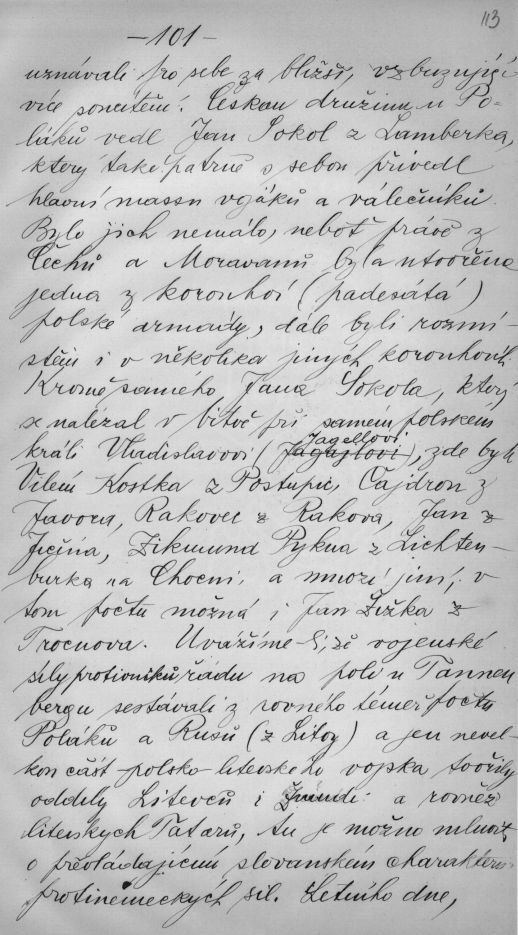 113
-101-
uznávali pro sebe za bližší, vzbuzující
více soucítění. Českou družinu u Po-
láků vedl Jan Sokol z Lamberka,
který také patrně s sebou přivedl
hlavní massu vojáků a válečníků.
Bylo jich nemálo, neboť právě z
Čechů a Moravanů byla utvořena
jedna z korouhví (padesátá)
polské armády, dále byli rozmí-
stěni i v několika jiných korouhvích.
Kromě samého Jana Sokola, který
se nalézal v bitvě při samém polském
Jagellovi
králi Vladislavovi (Jagajlovi), zde byli
Vilém Kostka z Postupic, Čajdron z
Javora, Rakovec z Rakova, Jan z
Jičína, Zikmund Pykna z Lichten-
burka na Chocni, a mnozí jiní, v
tom počtu možná i Jan Žižka z
Trocnova. Uvážíme-li, že vojenské
síly protivníků řádu na poli u Tannen
bergu sestávali z rovného téměř počtu
Poláků a Rusů (z Litvy) a jen nevel-
kou část polsko-litevského vojska tvořily
oddíly Litevců i Žmudi a rovněž
litevských Tatarů, tu je možno mluvit
o převládajícím slovanském charakteru
protiněmeckých sil. Letního dne,